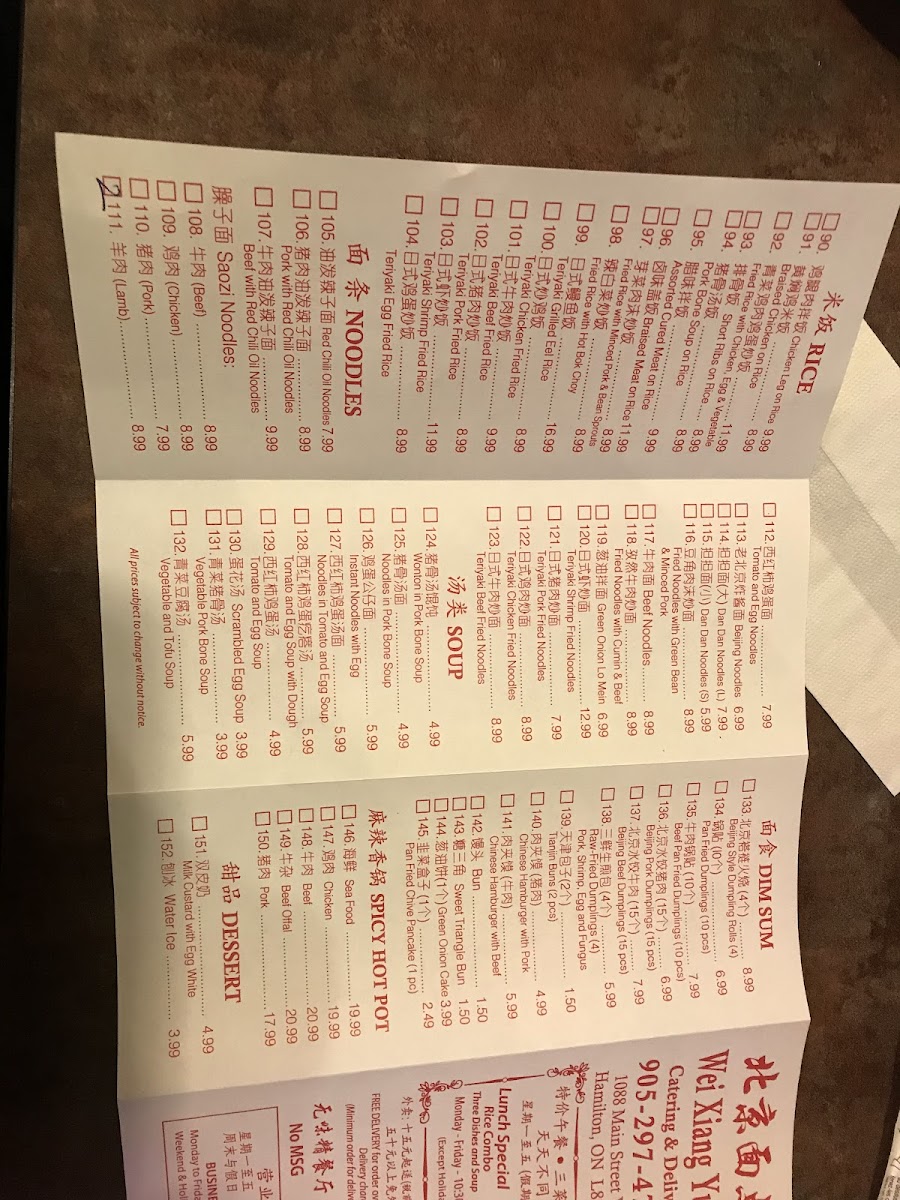 米饭 RICE
90. 鸡腿肉拌饭 Chicken Leg on Rice 9.99
91. 黄焖鸡米饭 ........ 9.99
Braised Chicken on Rice
92. 青菜鸡肉鸡蛋炒饭 ........ 8.99
Fried Rice with Chicken, Egg & Vegetable
93. 排骨饭 Short Ribs on Rice ........ 11.99
94. 猪骨汤饭 ........ 8.99
Pork Bone Soup on Rice
95. 腊味拌饭 ........ 8.99
Assorted Cured Meat on Rice
96. 卤味盖饭 Braised Meat on Rice 9.99
97. 芽菜肉沫炒饭 ........ 11.99
Fried Rice with Minced Pork & Bean Sprouts
98. 辣白菜炒饭 ........ 8.99
Fried Rice with Hor Bok Choy
99. 日式鳗鱼饭 ........ 16.99
Teriyaki Grilled Eel Rice
100. 日式炒鸡饭 ........ 8.99
Teriyaki Chicken Fried Rice
101. 日式牛肉炒饭 ........ 9.99
Teriyaki Beef Fried Rice
102. 日式猪肉炒饭 ........ 8.99
Teriyaki Pork Fried Rice
103. 日式虾炒饭 ........ 11.99
Teriyaki Shrimp Fried Rice
104. 日式鸡蛋炒饭 ........ 8.99
Teriyaki Egg Fried Rice
面 条 NOODLES
105. 油泼辣子面 Red Chili Oil Noodles 7.99
106. 猪肉油泼辣子面 ........ 8.99
Pork with Red Chili Oil Noodles
107. 牛肉油泼辣子面 ........ 9.99
Beef with Red Chili Oil Noodles
臊子面 Saozi Noodles:
108. 牛肉 (Beef) ........ 8.99
109. 鸡肉 (Chicken) ........ 8.99
110. 猪肉 (Pork) ........ 7.99
2 111. 羊肉 (Lamb) ........ 8.99
112. 西红柿鸡蛋面 ........ 7.99
Tomato and Egg Noodles
113. 老北京炸酱面 Beijing Noodles 6.99
114. 担担面(大) Dan Dan Noodles (L) 7.99
115. 担担面(小) Dan Dan Noodles (S) 5.99
116. 豆角肉沫炒面 ........ 8.99
Fried Noodles with Green Bean
& Minced Pork
117. 牛肉面 Beef Noodles ........ 8.99
118. 孜然牛肉炒面 ........ 8.99
Fried Noodles with Cumin & Beef
119. 葱油拌面 Green Onion Lo Mein 6.99
120. 日式虾炒面 ........ 12.99
Teriyaki Shrimp Fried Noodles
121. 日式猪肉炒面 ........ 7.99
Teriyaki Pork Fried Noodles
122. 日式鸡肉炒面 ........ 8.99
Teriyaki Chicken Fried Noodles
123. 日式牛肉炒面 ........ 8.99
Teriyaki Beef Fried Noodles
汤类 SOUP
124. 猪骨汤馄饨 ........ 4.99
Wonton in Pork Bone Soup
125. 猪骨汤面 ........ 4.99
Noodles in Pork Bone Soup
126. 鸡蛋公仔面 ........ 5.99
Instant Noodles with Egg
127. 西红柿鸡蛋汤面 ........ 5.99
Noodles in Tomato and Egg Soup
128. 西红柿鸡蛋疙瘩汤 ........ 5.99
Tomato and Egg Soup with Dough
129. 西红柿鸡蛋汤 ........ 4.99
Tomato and Egg Soup
130. 蛋花汤 Scrambled Egg Soup 3.99
131. 青菜猪骨汤 ........ 3.99
Vegetable Pork Bone Soup
132. 青菜豆腐汤 ........ 5.99
Vegetable and Tofu Soup
All prices subject to change without notice.
面食 DIM SUM
133. 北京褡裢火烧 (4个) ........ 8.99
Beijing Style Dumpling Rolls (4)
134. 锅贴 (10个) ........ 6.99
Pan Fried Dumplings (10 pcs)
135. 牛肉锅贴 (10个) ........ 7.99
Beef Pan Fried Dumplings (10 pcs)
136. 北京水饺猪肉 (15个) ........ 6.99
Beijing Pork Dumplings (15 pcs)
137. 北京水饺牛肉 (15个) ........ 7.99
Beijing Beef Dumplings (15 pcs)
138. 三鲜生煎包 (4个) ........ 5.99
Raw-Fried Dumplings (4)
Pork, Shrimp, Egg and Fungus
139. 天津包子(2个) ........ 1.50
Tianjin Buns (2 pcs)
140. 肉夹馍 (猪肉) ........ 4.99
Chinese Hamburger with Pork
141. 肉夹馍 (牛肉) ........ 5.99
Chinese Hamburger with Beef
142. 馒头 Bun ........ 1.50
143. 糖三角 Sweet Triangle Bun 1.50
144. 葱油饼(1个) Green Onion Cake 3.99
145. 韭菜盒子 (1个) ........ 2.49
Pan Fried Chive Pancake (1 pc)
麻辣香锅 SPICY HOT POT
146. 海鲜 Sea Food ........ 19.99
147. 鸡肉 Chicken ........ 19.99
148. 牛肉 Beef ........ 20.99
149. 牛杂 Beef Offal ........ 20.99
150. 猪肉 Pork ........ 17.99
甜品 DESSERT
151. 双皮奶 ........ 4.99
Milk Custard with Egg White
152. 刨冰 Water Ice ........ 3.99
北京面
Wei Xiang
905-297-4
Catering &
1088 Main Street
Hamilton, ON L8
特价午餐 • 三菜
天天不同
星期一至五 (假期
Lunch Special
Rice Combo
Three Dishes and Soup
Monday - Friday - 10:3
(Except Holida
外卖: 十五元起送
五十元以上免
FREE DELIVERY for order
(Minimum order for
Delivery
无味精餐厅
No MSG
营业
星期一至五
周末与假日
Monday to Friday
Weekend & Holi